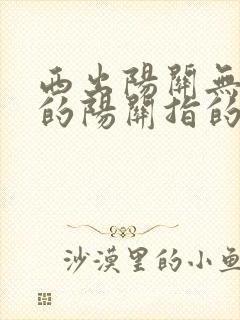 西出陽關無
的陽關指的
沙漠里的小鱼